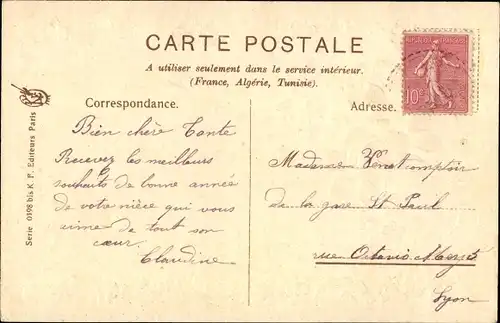 CARTE POSTALE
A utiliser seulement dans le service intérieur.
(France, Algérie, Tunisie).
Correspondance.
Adresse.
Bien chère Tante
Recevez les meilleurs
souhaits de bonne année
de votre nièce qui vous
aime de tout son
cœur.
Claudine
Madame
de la gare St Paul
rue Octavio Mey 5
Lyon
Serie 0198 bis K. F. Editeurs Paris
10c